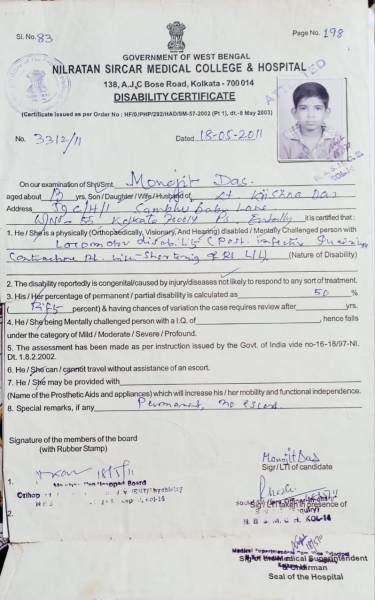 Sl. No. 83
Page No. 198
GOVERNMENT OF WEST BENGAL
NILRATAN SIRCAR MEDICAL COLLEGE & HOSPITAL
138, A.J.C Bose Road, Kolkata - 700014
DISABILITY CERTIFICATE
(Certificate issued as per Order No : HF/0/PHP/292/HAD/9M-57-2002 (Pt 1), dt.-9 May 2003)
ATTESTED
No. 3312/11
Dated 18-05-2011
On our examination of Shri/Smt. Monojit Das.
aged about yrs. Son / Daughter / Wife / Husband of Lt Krishna Das
Address Sambhu Babu Lane
Kolkata PS. Entally it is certified that :
1. He / She is a physically (Orthopaedically, Visionary, And Hearing) disabled / Mentally Challenged person with
Locomotor disability (Post infective
Contracture Rt. Shortening of Rt L/L) (Nature of Disability)
2. The disability reportedly is congenital/caused by injury/diseases not likely to respond to any sort of treatment.
3. His / Her percentage of permanent / partial disability is calculated as 50 %
( Fifty percent) & having chances of variation the case requires review after yrs.
4. He / She being Mentally challenged person with a I.Q. of , hence falls
under the category of Mild / Moderate / Severe / Profound.
5. The assessment has been made as per instruction issued by the Govt. of India vide no-16-18/97-NI.
Dt. 1.8.2002.
6. He / She can / cannot travel without assistance of an escort.
7. He / She may be provided with
(Name of the Prosthetic Aids and appliances) which will increase his / her mobility and functional independence.
8. Special remarks, if any Permanent, no escort
Signature of the members of the board
(with Rubber Stamp)
Monojit Das
Sigr / LTI of candidate
1.
18/5/11
Sig / LTI taken in presence of
KOL-14
2.
Sig of the Medical Superintendent
& Chairman
Seal of the Hospital